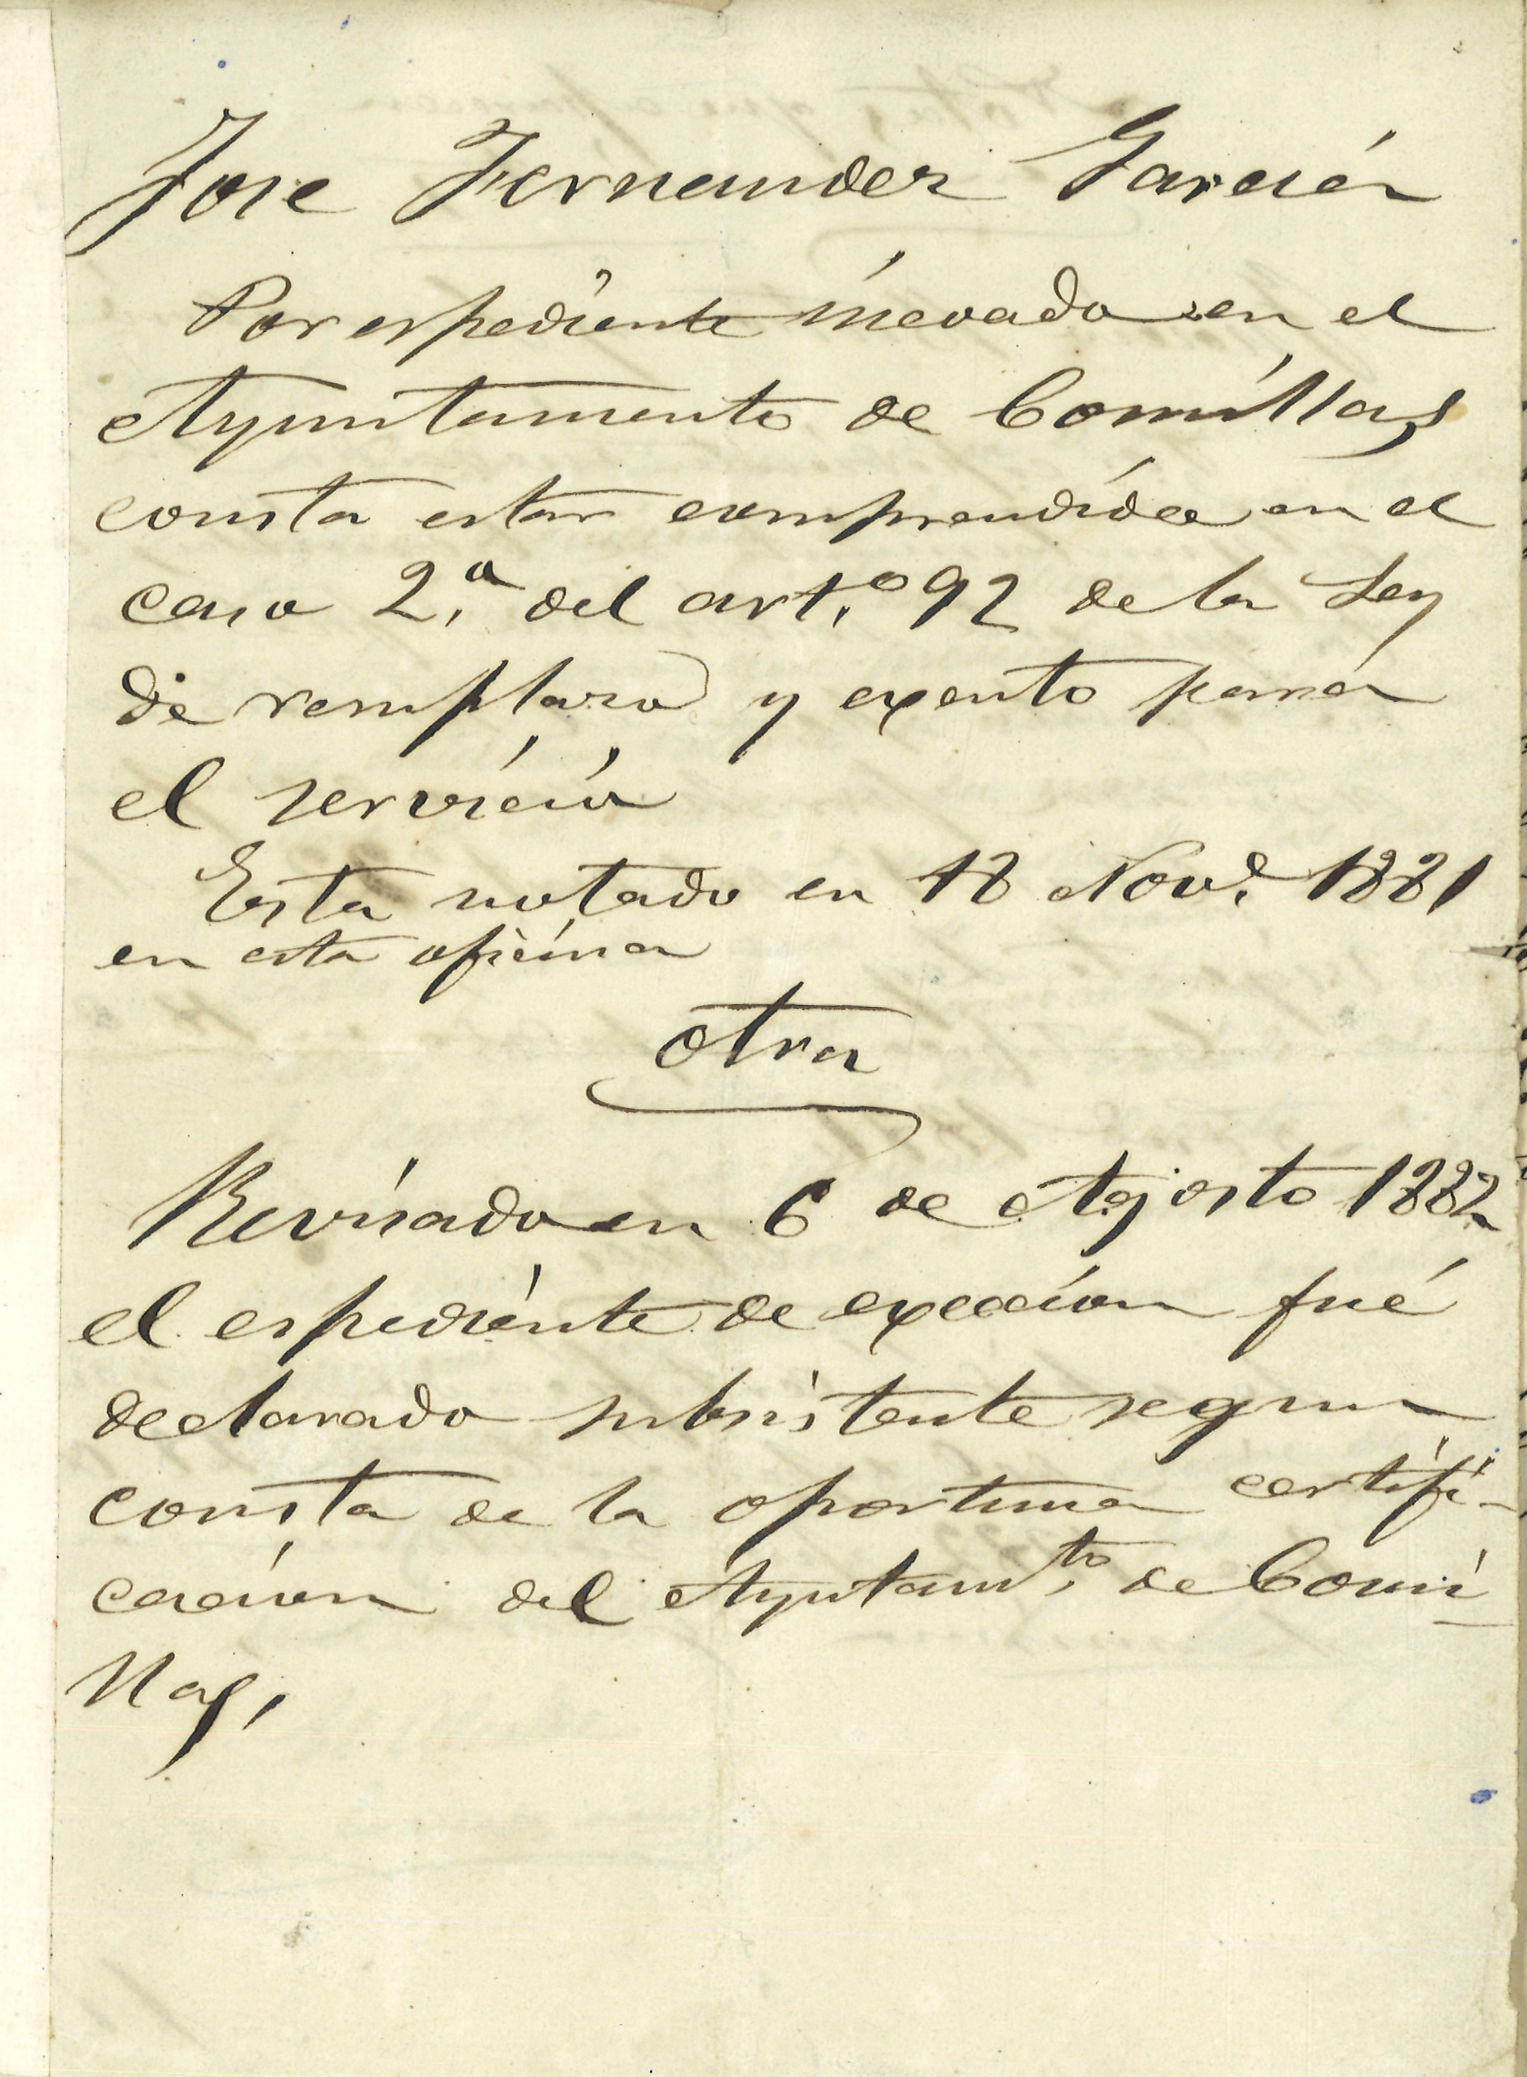 Jose Fernandez García
Por espediente incoado en el
Ayuntamiento de Comillas
consta estar comprendido en el
caso 2.º del art.º 92 de la Ley
de remplazo y exento para
el servicio
Esta notado en 18 Nov.e 1881
en esta oficina
otra
Revisado en 6 de Agosto 1882
el espediente de exección fué
declarado subsistente segun
consta de la oportuna certifi-
cacion del Ayutam.to de Comi-
llas,